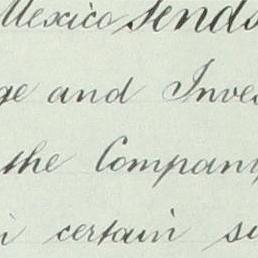 Mexico send
ge and Inves
the Company
in certain su